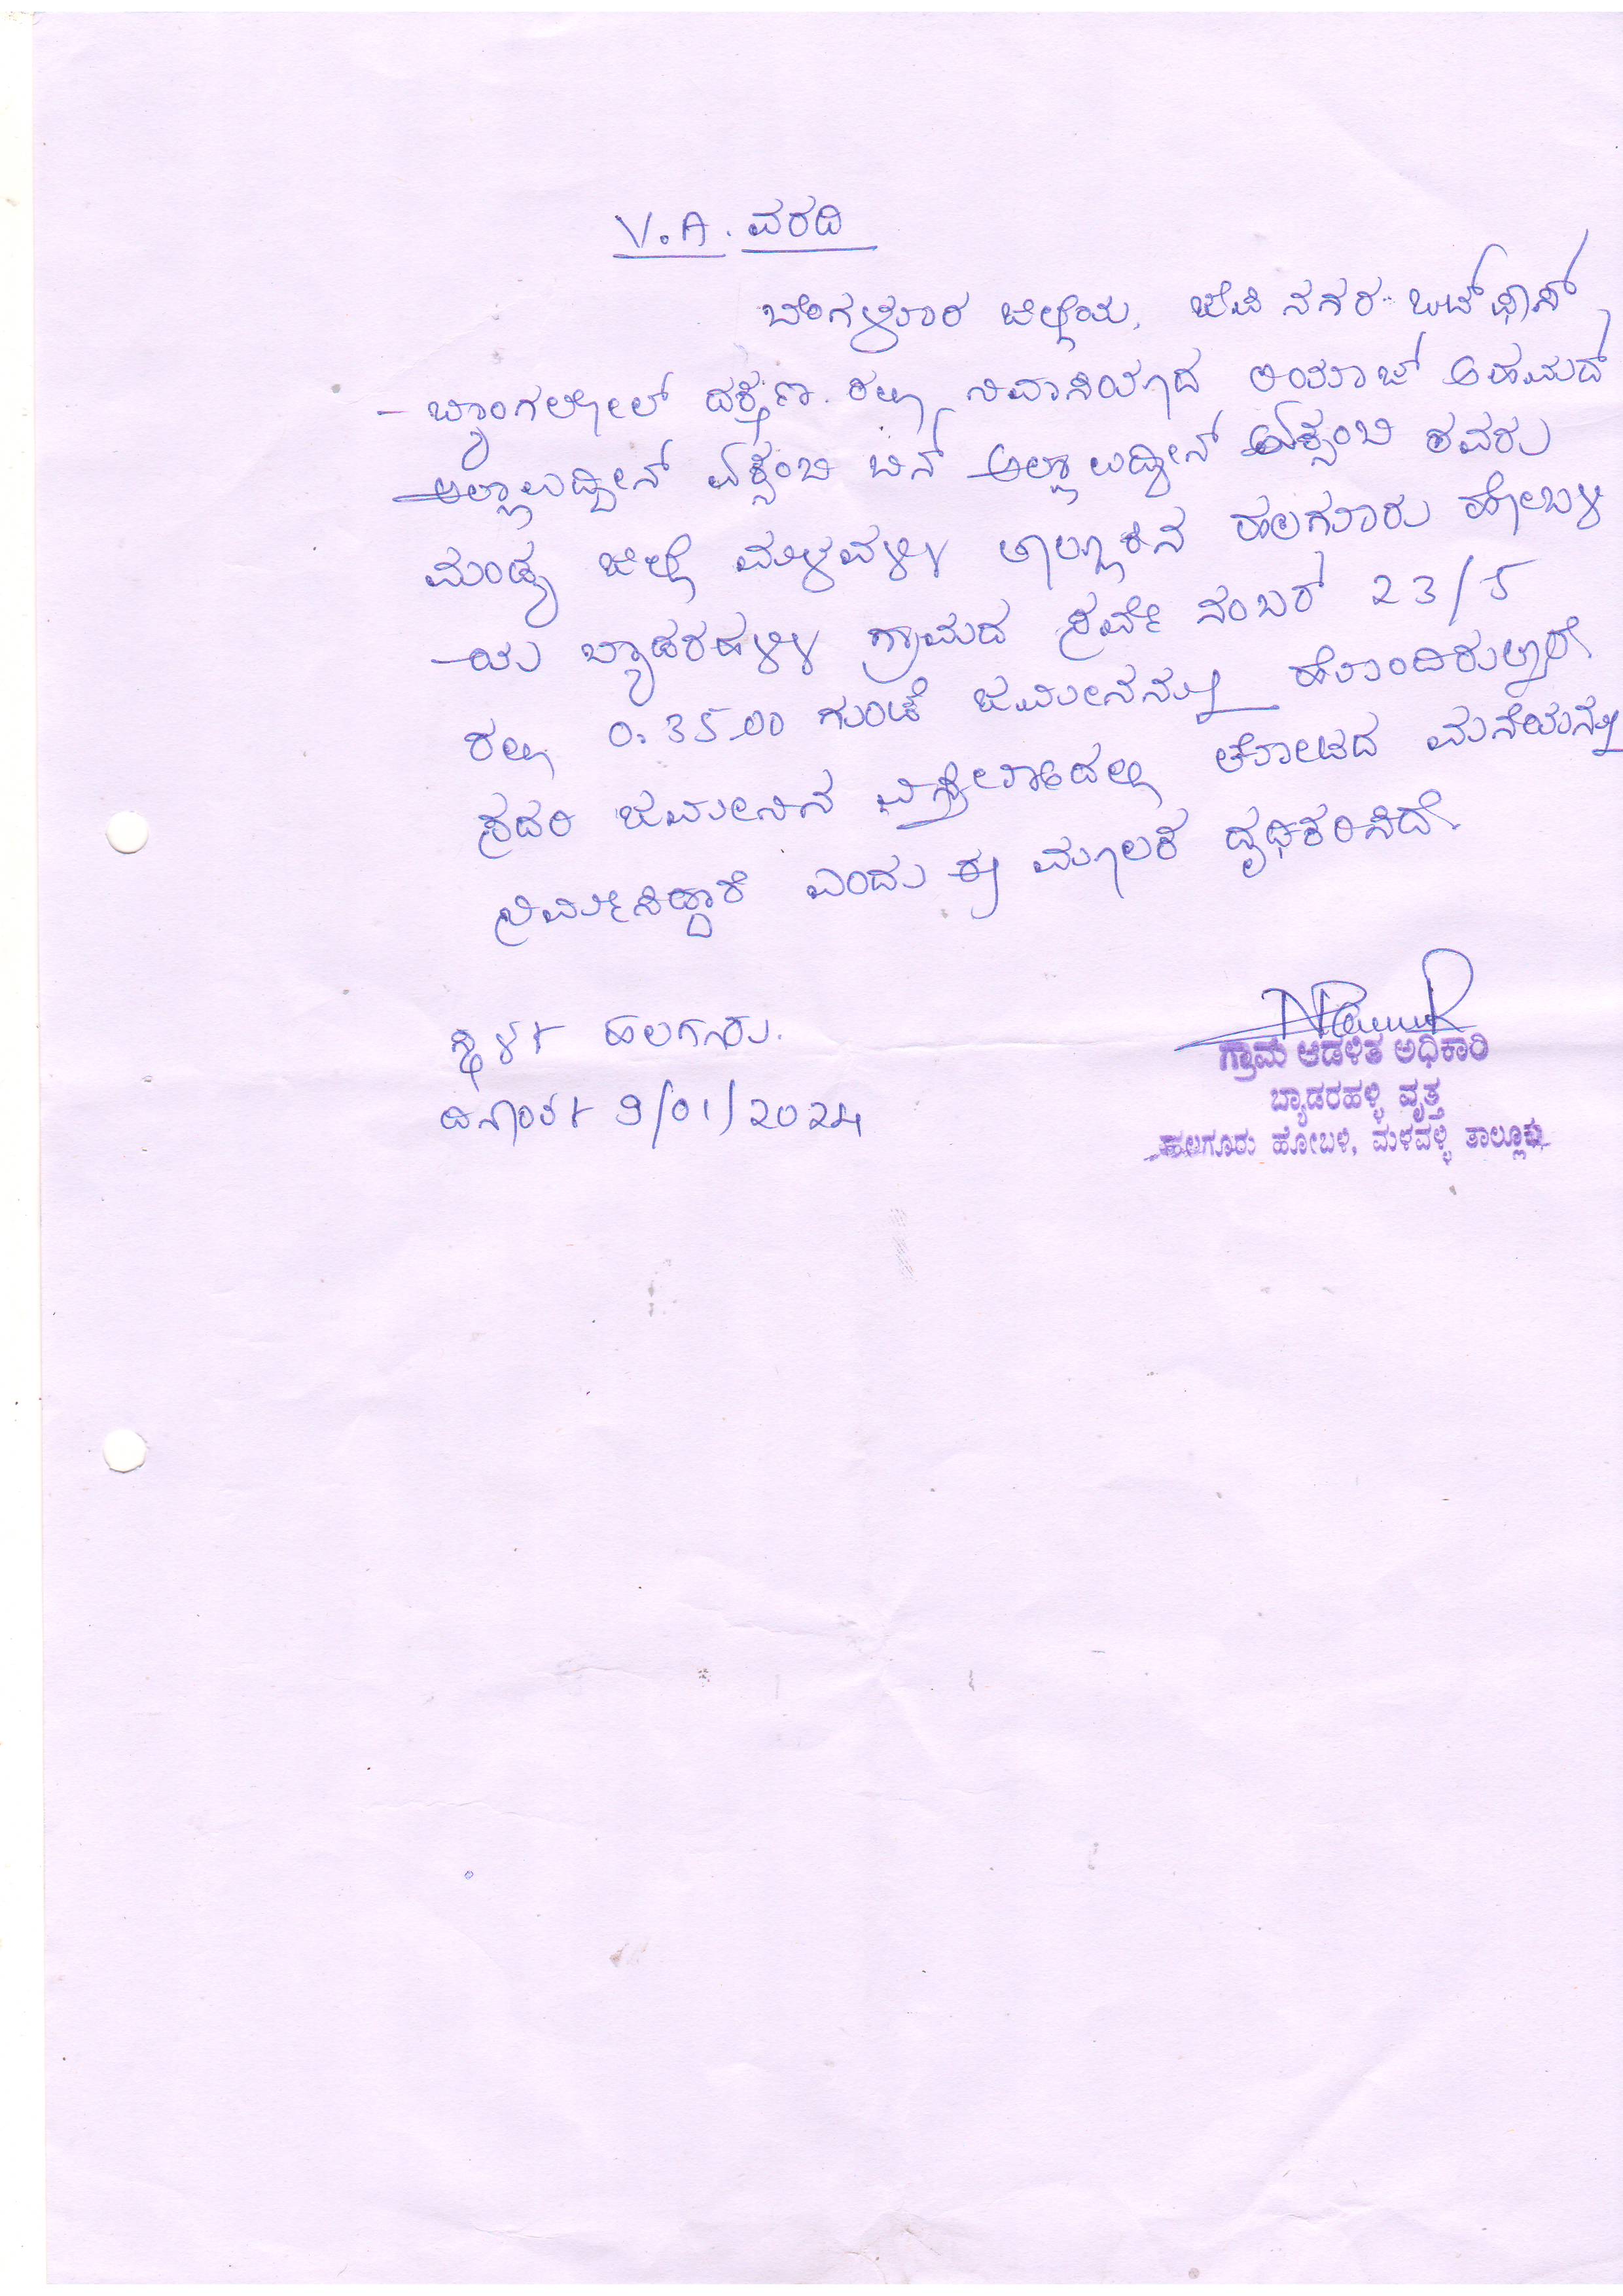 V.A. ವರದಿ
ಬೆಂಗಳೂರ ಜಿಲ್ಲೆಯ, ಜೆಪಿ ನಗರ
ಬ್ಯಾಂಗಲೋರ್ ದಕ್ಷಿಣ ರಲ್ಲಿ ನಿವಾಸಿಯಾದ ಅಯಾಜ್ ಅಹಮದ್
ಅಲ್ಲಾಉದ್ದೀನ್ ಏಕ್ಸಂಬಿ ಬಿನ್ ಅಲ್ಲಾಉದ್ದೀನ್ ಏಕ್ಸಂಬಿ ರವರು
ಮಂಡ್ಯ ಜಿಲ್ಲೆ ಮಳವಳ್ಳಿ ತಾಲ್ಲೂಕಿನ ಹಲಗೂರು ಹೋಬಳಿ
-ಯ ಬ್ಯಾಡರಹಳ್ಳಿ ಗ್ರಾಮದ ಸರ್ವೇ ನಂಬರ್ 23/5
ರಲ್ಲಿ 0.35.00 ಗುಂಟೆ ಜಮೀನನ್ನು ಹೊಂದಿರುತ್ತಾರೆ.
ಸದರಿ ಜಮೀನಿನ ವಿಸ್ತೀರ್ಣದಲ್ಲಿ ತೋಟದ ಮನೆಯನ್ನು
ನಿರ್ಮಿಸಿದ್ದಾರೆ ಎಂದು ಈ ಮೂಲಕ ದೃಢಿಕರಿಸಿದೆ.
ಸ್ಥಳ:- ಹಲಗೂರು.
ದಿನಾಂಕ:- 9/01/2024
ಗ್ರಾಮ ಆಡಳಿತ ಅಧಿಕಾರಿ
ಬ್ಯಾಡರಹಳ್ಳಿ ವೃತ್ತ
ಹಲಗೂರು ಹೋಬಳಿ, ಮಳವಳ್ಳಿ ತಾಲ್ಲೂಕು